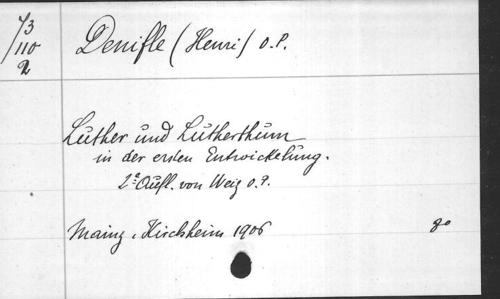 73
110
2
Denifle (Henri) O.P.
Luther und Lutherthum
in der ersten Entwickelung.
2e Aufl. von Weiß O.P.
Mainz, Kirchheim 1906
8o